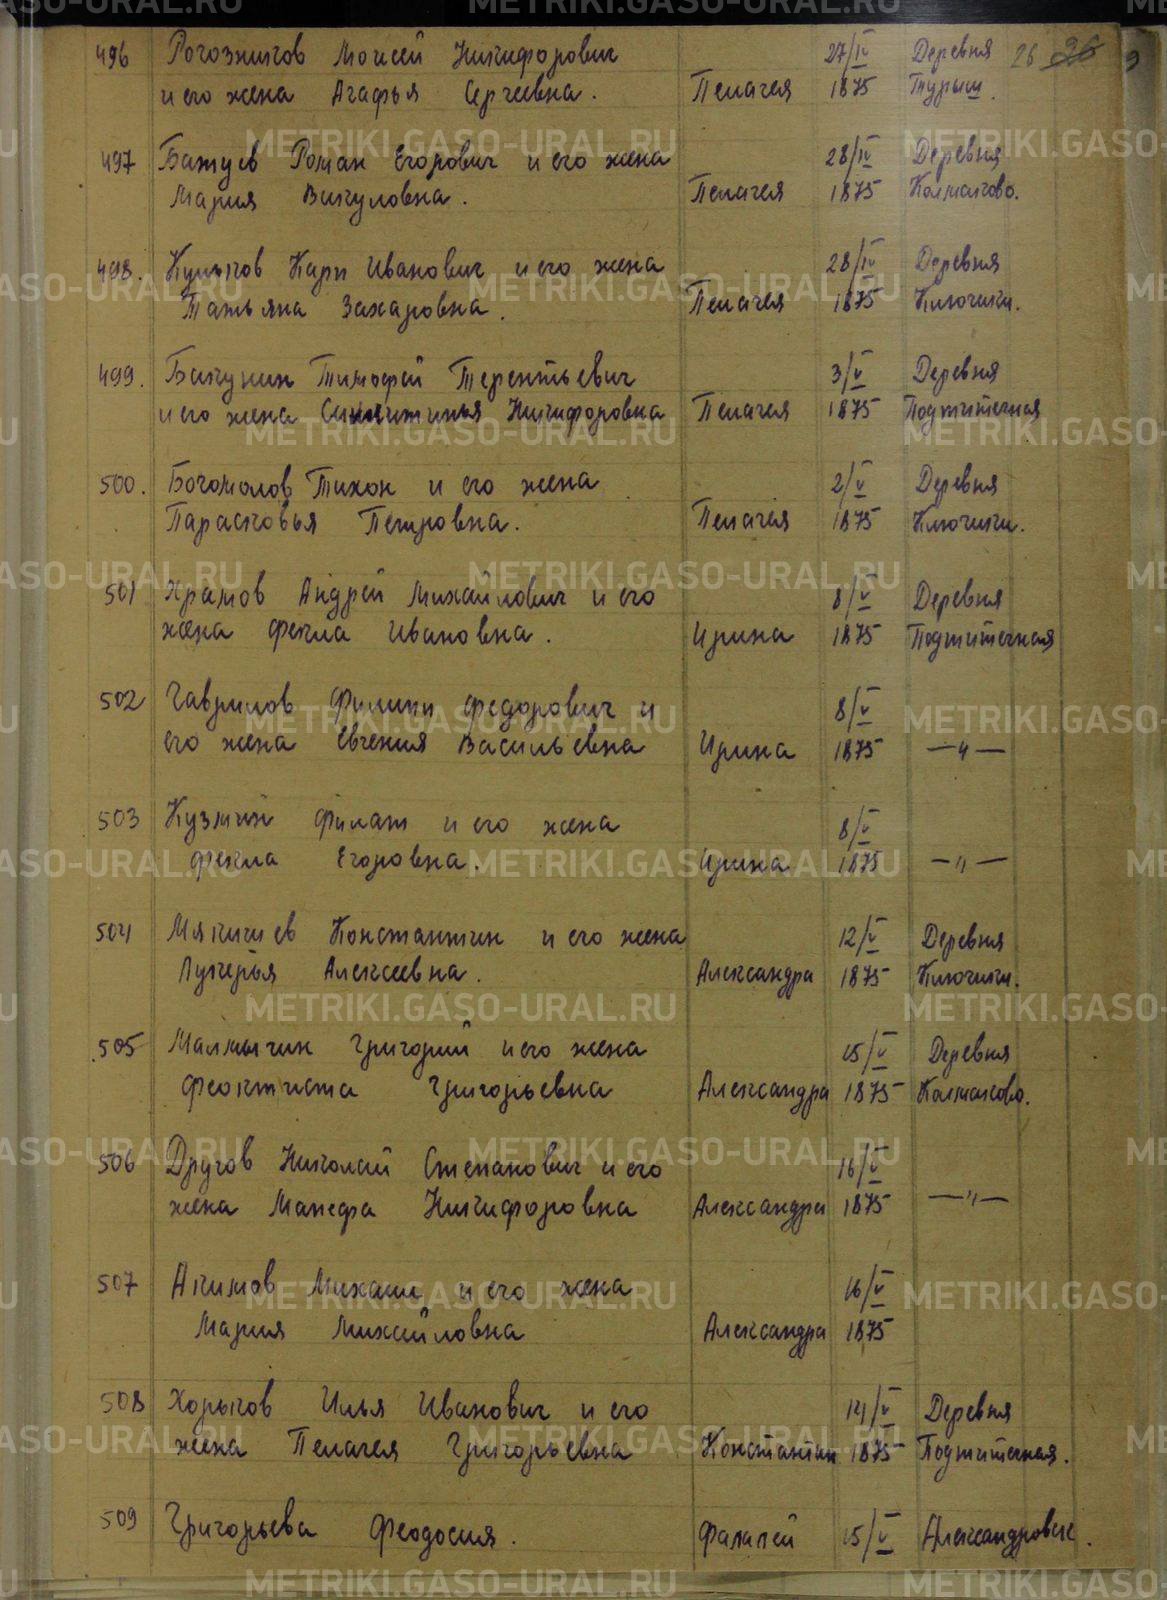 496 Рогозников Моисей Никифорович 27/IV Деревня 26 36
и его жена Агафья Сергеевна. Пелагея 1875 Турыш.
497 Бажуев Роман Егорович и его жена 28/IV Деревня
Мария Викуловна. Пелагея 1875 Колмаково.
498. Куликов Карп Иванович и его жена 28/IV Деревня
Татьяна Захаровна. Пелагея 1875 Ключики.
499. Бакунин Тимофей Терентьевич 3/V Деревня
и его жена Никифоровна Пелагея 1875
500. Богомолов Тихон и его жена 2/V Деревня
Парасковья Петровна. Пелагея 1875 Ключики.
501 Храмов Андрей Михайлович и его 8/V Деревня
жена Фекла Ивановна. Ирина 1875
502 Гаврилов Филипп Федорович и 8/V
его жена Евгения Васильевна Ирина 1875 —"—
503 Кузмин Филат и его жена 8/V
Фекла Егоровна. Ирина 1875 —"—
504 Мякишев Константин и его жена 12/V Деревня
Лукерья Алексеевна. Александра 1875 Ключики.
505 Малмыгин Григорий и его жена 15/V Деревня
Феоктиста Григорьевна Александра 1875 Колмаково.
506 Другов Николай Степанович и его 16/V
жена Манефа Никифоровна Александра 1875 —"—
507 Акимов Михаил и его жена 16/V
Мария Михайловна Александра 1875
508 Хорьков Илья Иванович и его 14/V Деревня
жена Пелагея Григорьевна Константин 1875
509 Григорьева Феодосия. Фалалей 15/V Александровск.
METRIKI.GASO-URAL.RU